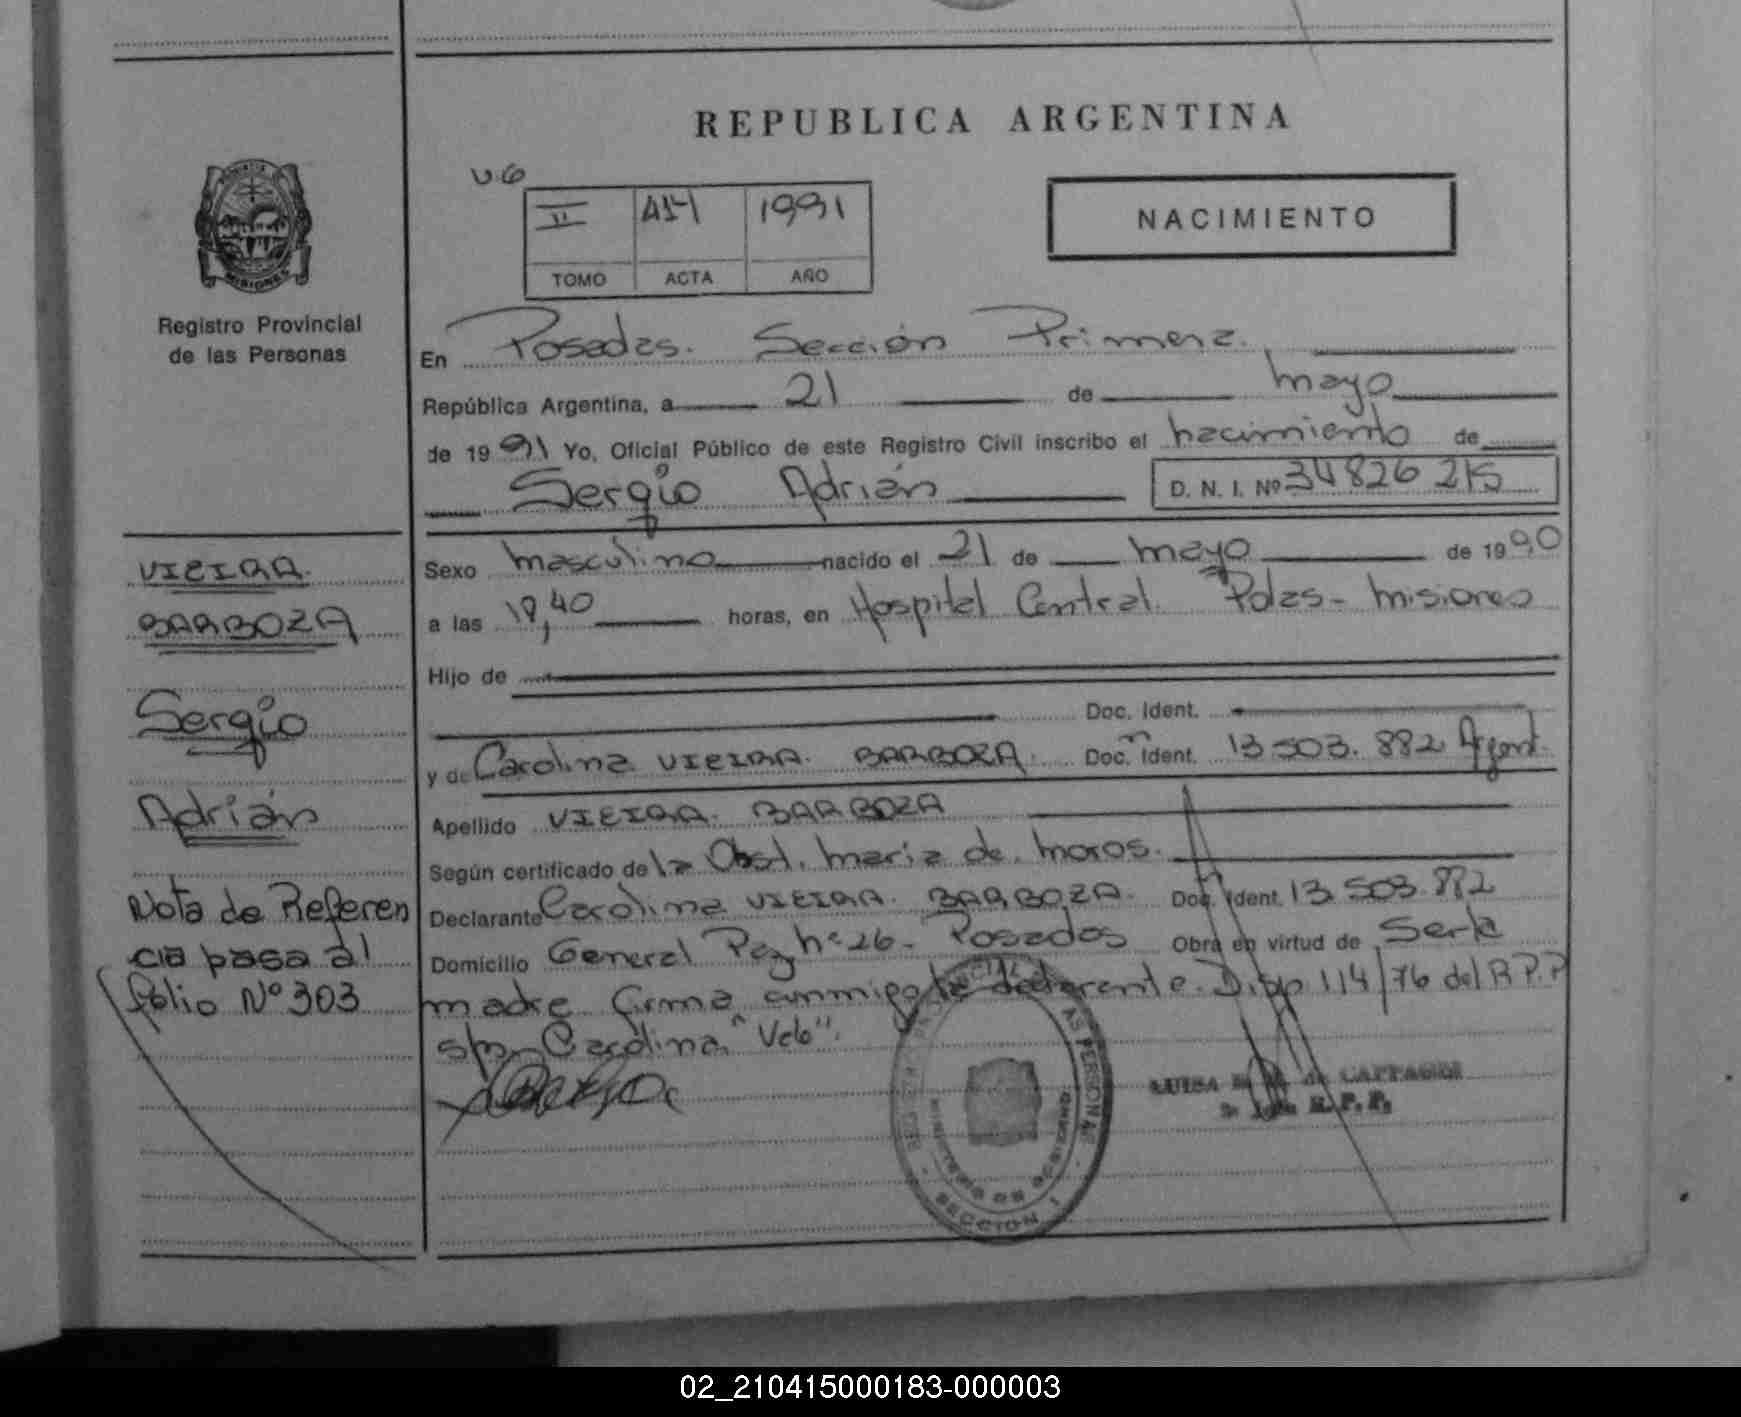 REPUBLICA ARGENTINA
MISIONES
Registro Provincial
de las Personas
II 414 1991
TOMO ACTA AÑO
NACIMIENTO
En Posadas. Sección Primera.
República Argentina, a 21 de mayo
de 1991 Yo, Oficial Público de este Registro Civil inscribo el nacimiento de
Sergio Adrián D. N. I. Nº 34826 215
Sexo masculino nacido el 21 de mayo de 1990
a las horas, en Hospital Central. Pdas - Misiones
Hijo de
Doc. Ident.
y de Carolina VIEIRA. BARBOZA. Doc. Ident. 13.503.882 Argent.
Apellido VIEIRA. BARBOZA
Según certificado de la Obst. maria de.
Declarante Carolina VIEIRA. BARBOZA. Doc. Ident. 13.503.882
Domicilio General Paz nº 26 - Posadas Obra en virtud de Ser la
madre firma conmigo la declarante. Disp 114/76 del R.P.P
s/p. Carolina, "Vale".
VIEIRA.
BARBOZA
Sergio
Adrián
Nota de Referen
cia pasa al
folio Nº 303
REGISTRO PROVINCIAL DE LAS PERSONAS
MINISTERIO DE GOBIERNO
SECCION 1
LUISA
R. P. P.
02_210415000183-000003